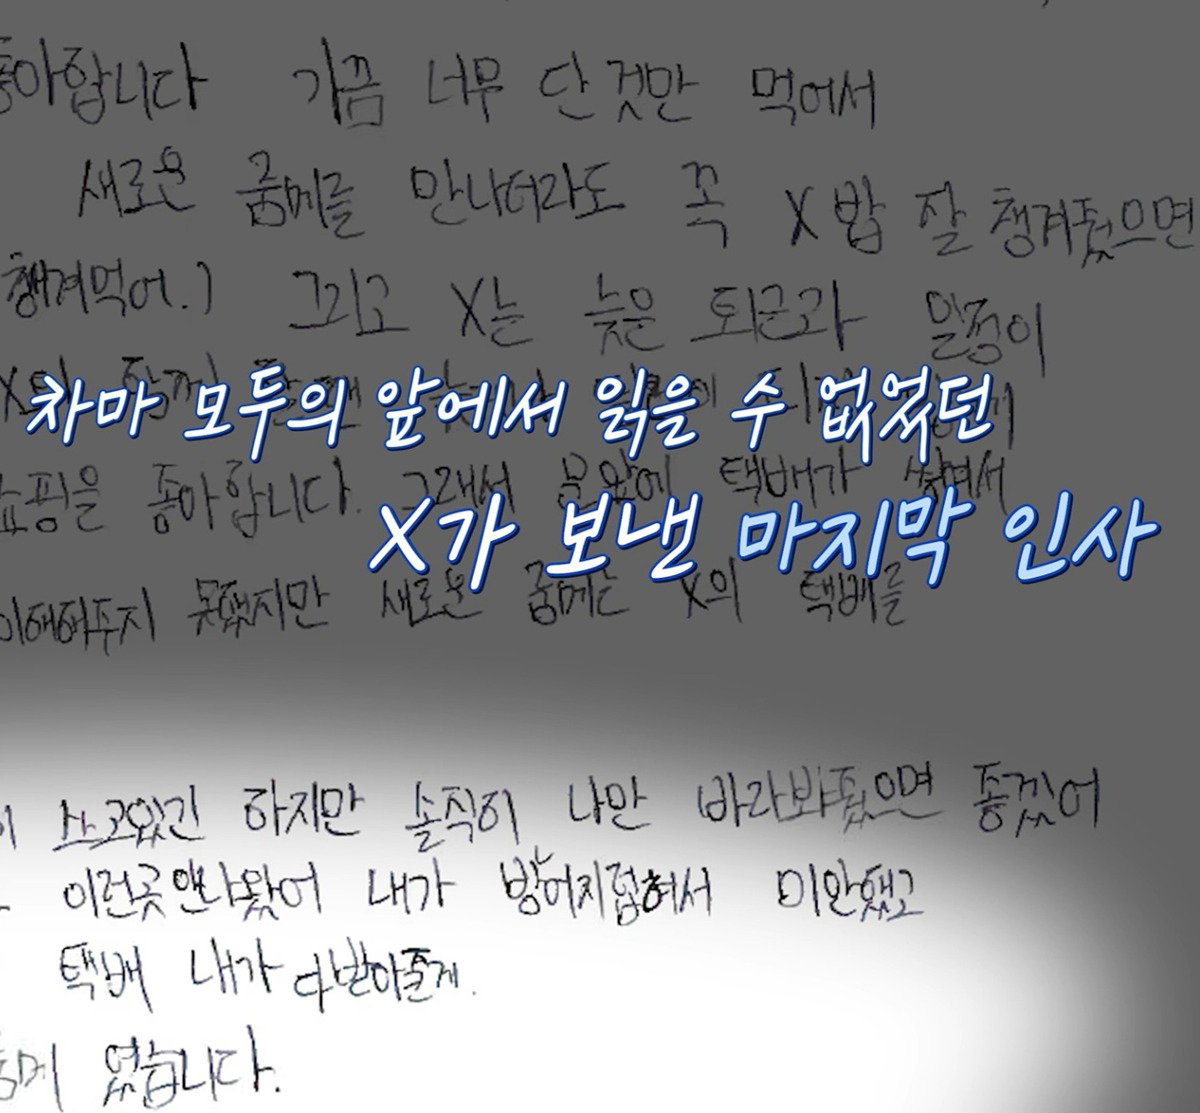 좋아합니다 가끔 너무 단 것만 먹어서
새로운 룸메를 만나더라도 꼭 X 밥 잘 챙겨줬으면
챙겨먹어.) 그리고 X는 늦은 퇴근과 일정이
차마 모두의 앞에서 읽을 수 없었던
쇼핑을 좋아합니다. 그래서 문앞에 택배가 쌓여서
X가 보낼 마지막 인사
이해해주지 못했지만 새로운 룸메는 X의 택배를
쓰고있긴 하지만 솔직히 나만 바라봐줬으면 좋겠어
이런곳 내가 미안했고
택배 내가 다 받아줄게.
룸메 였습니다.